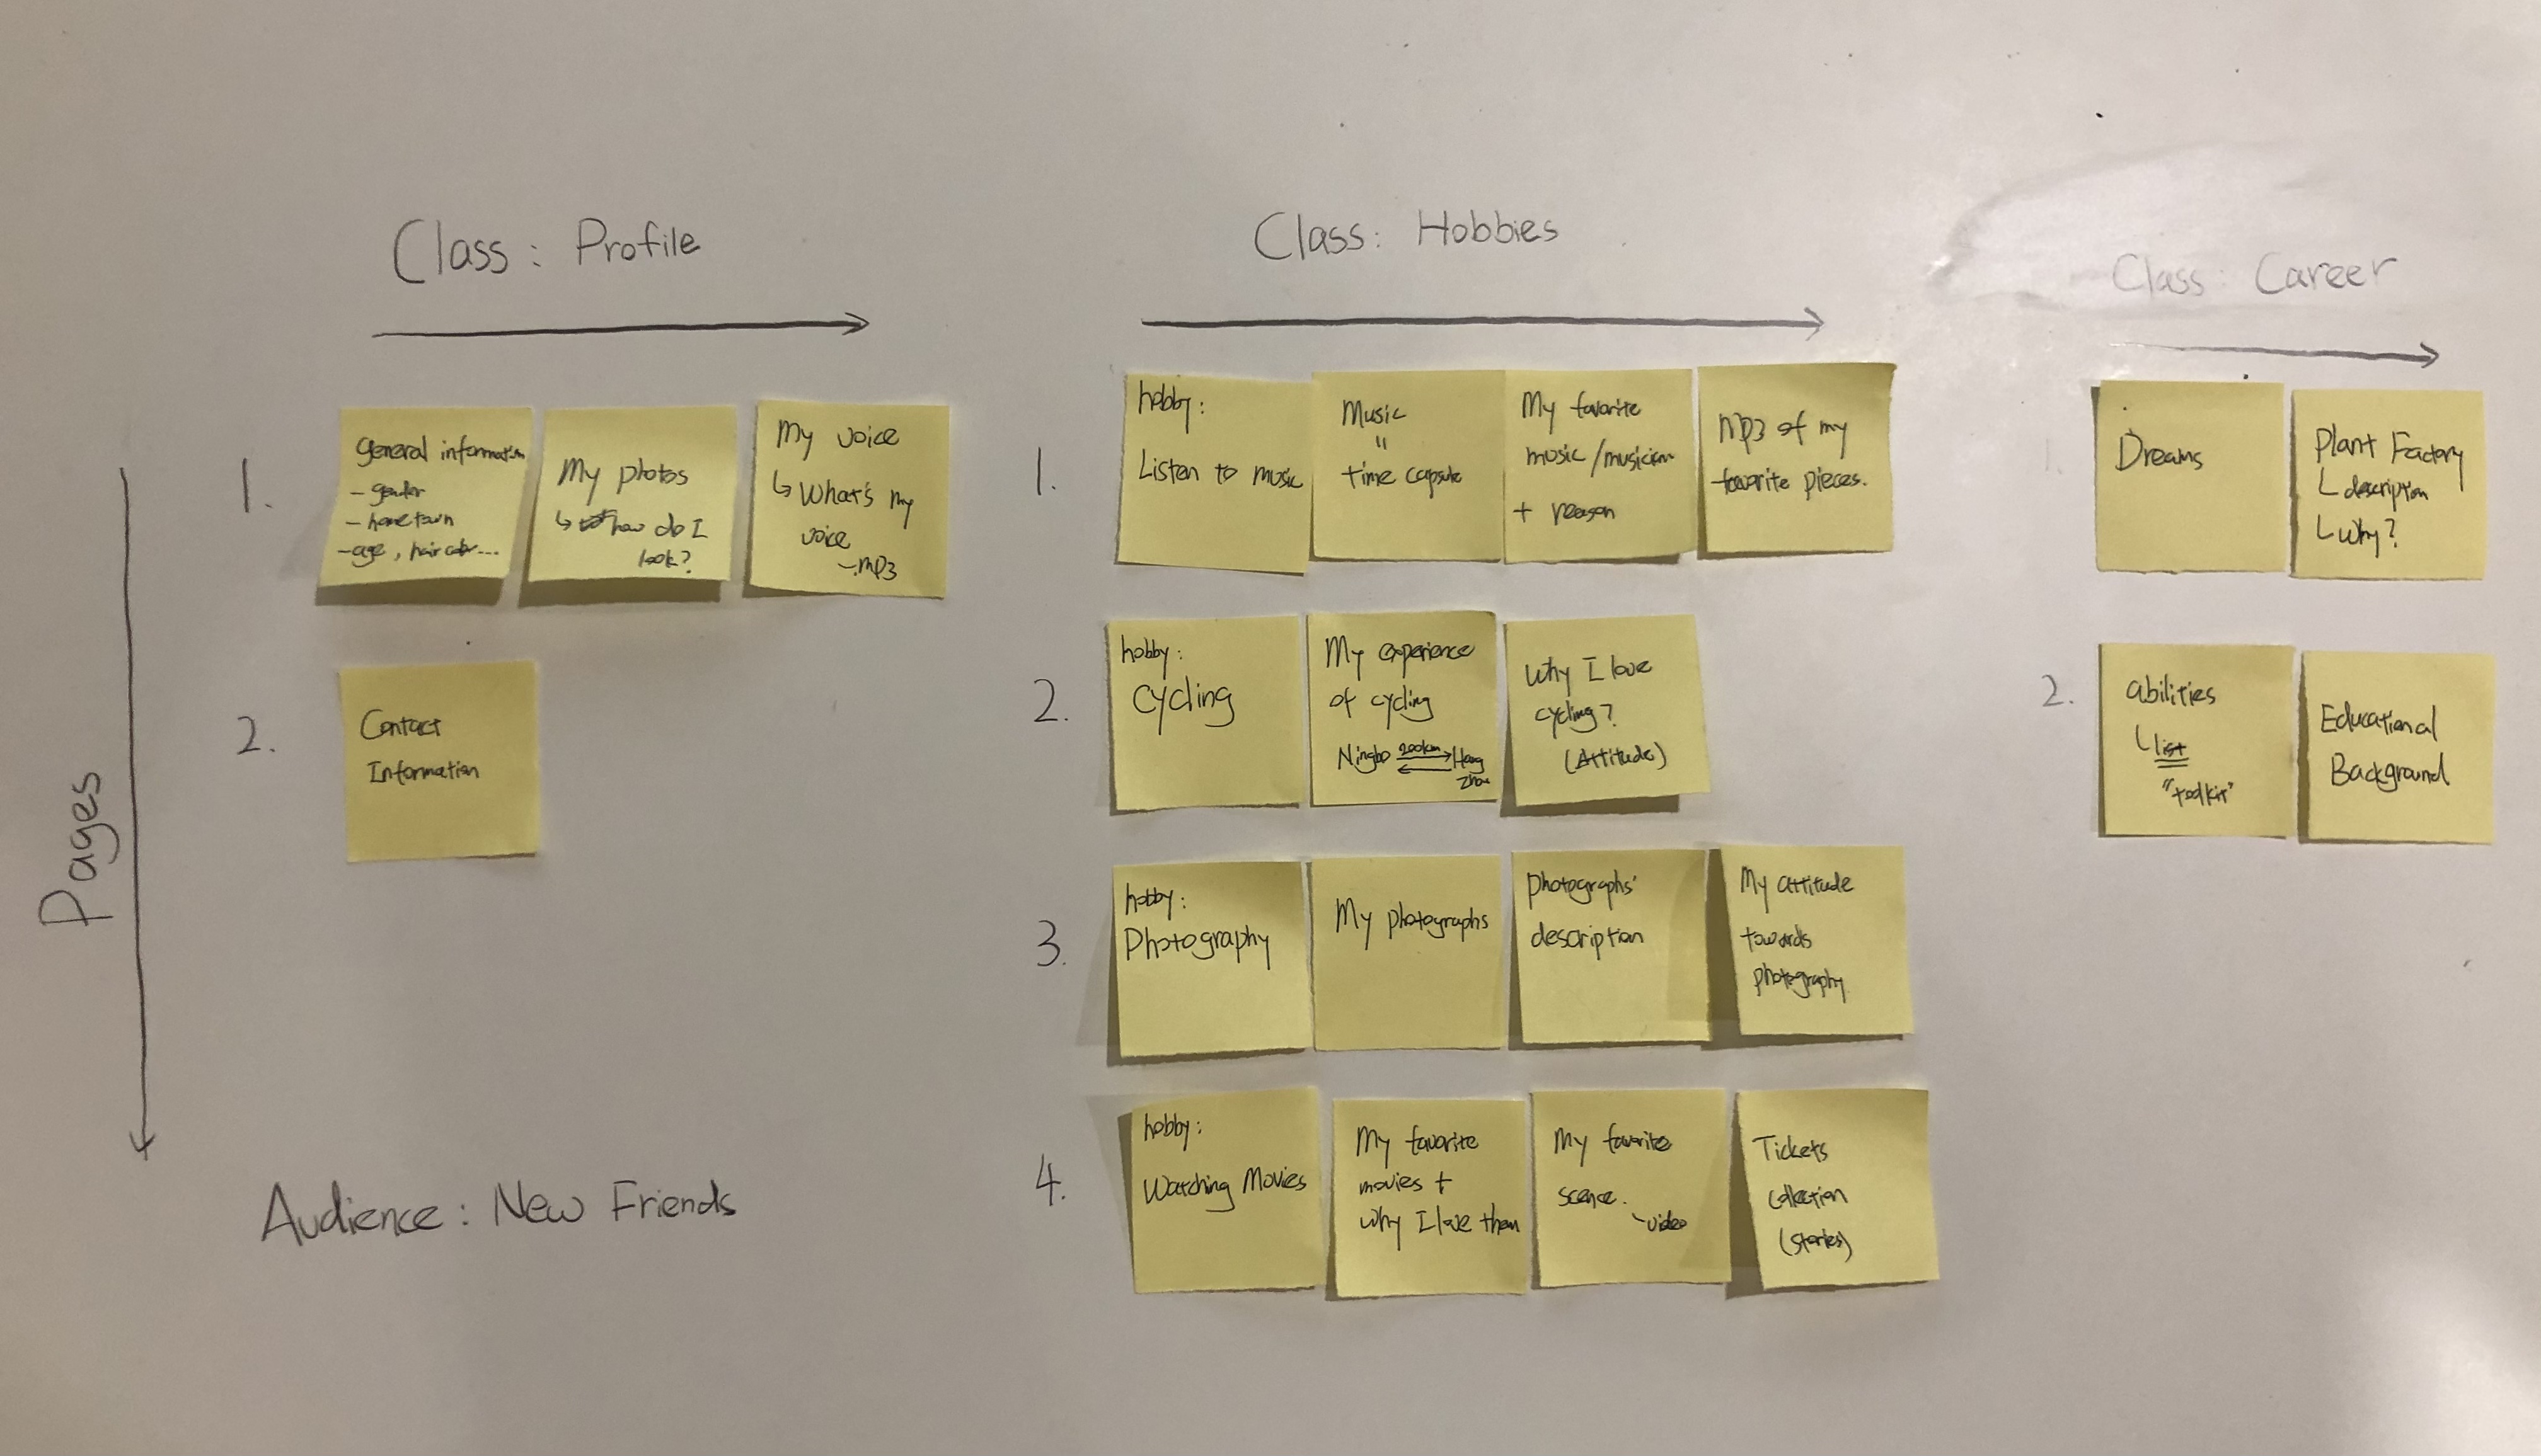 Class: Profile
Class: Hobbies
Class: Career
Pages
1.
general information
- gender
- hometown
- age, hair color...
My photos
↳ how do I
look?
My voice
↳ What's my
voice
-.mp3
2.
Contact
Information
Audience: New Friends
1.
hobby:
Listen to music
Music
"
time capsule
My favorite
music/musician
+ reason
mp3 of my
favorite pieces.
2.
hobby:
Cycling
My experience
of cycling
Ningbo 200km Hang
zhou
Why I love
cycling?
(Attitude)
3.
hobby:
Photography
My photographs
photographs'
description
My attitude
towards
photography
4.
hobby:
Watching Movies
My favorite
movies +
why I love them
My favorite
scence.
-video
Tickets
collection
(stories)
1.
Dreams
Plant Factory
└ description
└ Why?
2.
abilities
└ list
"toolkit"
Educational
Background